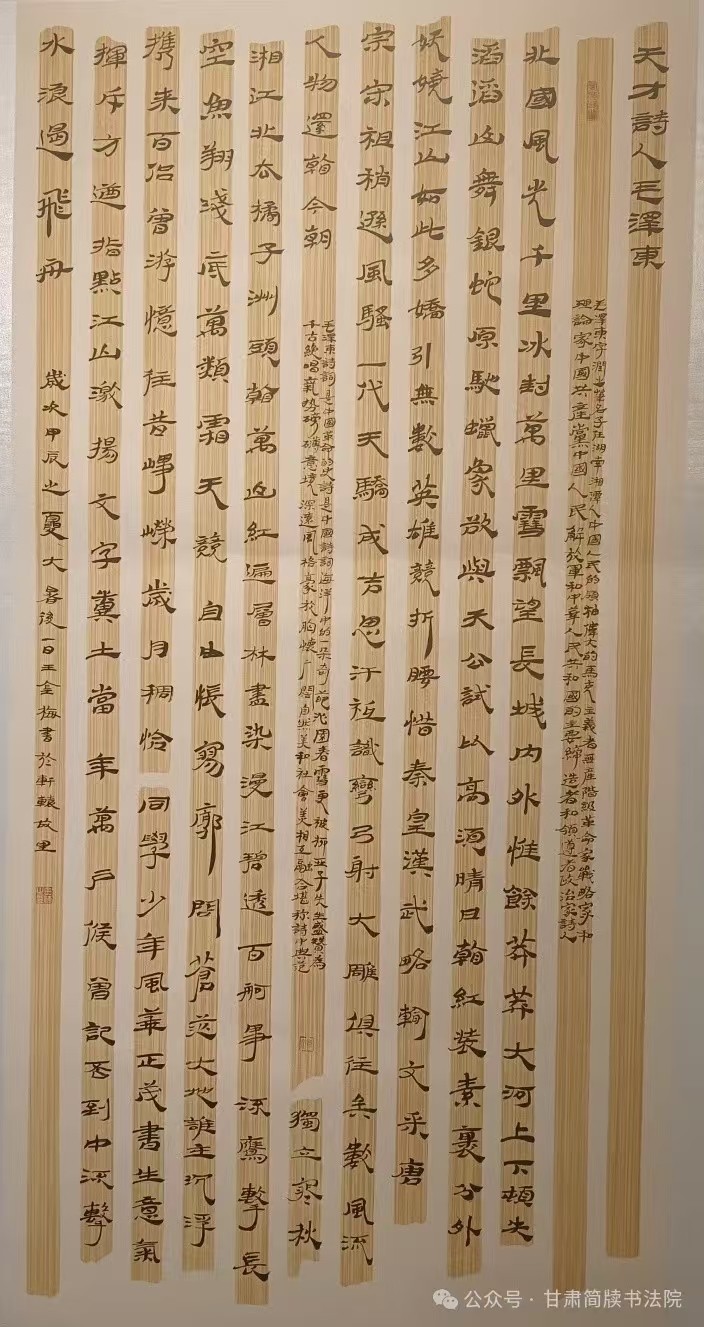 天才詩人毛澤東
毛澤東字潤之筆名子任湖南湘潭人中國人民的領袖偉大的馬克思主義者無產階級革命家戰略家和
理論家中國共產黨中國人民解放軍和中華人民共和國的主要締造者和領導者政治家詩人
北國風光千里冰封萬里雪飄望長城內外惟餘莽莽大河上下頓失
滔滔山舞銀蛇原馳蠟象欲與天公試比高須晴日看紅裝素裹分外
妖嬈江山如此多嬌引無數英雄競折腰惜秦皇漢武略輸文采唐
宗宋祖稍遜風騷一代天驕成吉思汗衹識彎弓射大雕俱往矣數風流
人物還看今朝
毛澤東詩詞是中國革命的史詩是中國詩詞海洋中的一朵奇葩沁園春雪更被柳亞子先生盛讚為
千古絶唱氣勢磅礴意境深遠風格豪放胸懷廣闊自然美和社會美相互融合堪稱詩中典範
獨立寒秋
湘江北去橘子洲頭看萬山紅遍層林盡染漫江碧透百舸爭流鷹擊長
空魚翔淺底萬類霜天競自由悵寥廓問蒼茫大地誰主沉浮
攜来百侣曾游憶往昔崢嶸歲月稠恰同學少年風華正茂書生意氣
揮斥方遒指點江山激揚文字糞土當年萬戶侯曾記否到中流擊
水浪遏飛舟
歲次甲辰之夏大暑後一日王金梅書於軒轅故里
公众号·甘肃简牍书法院